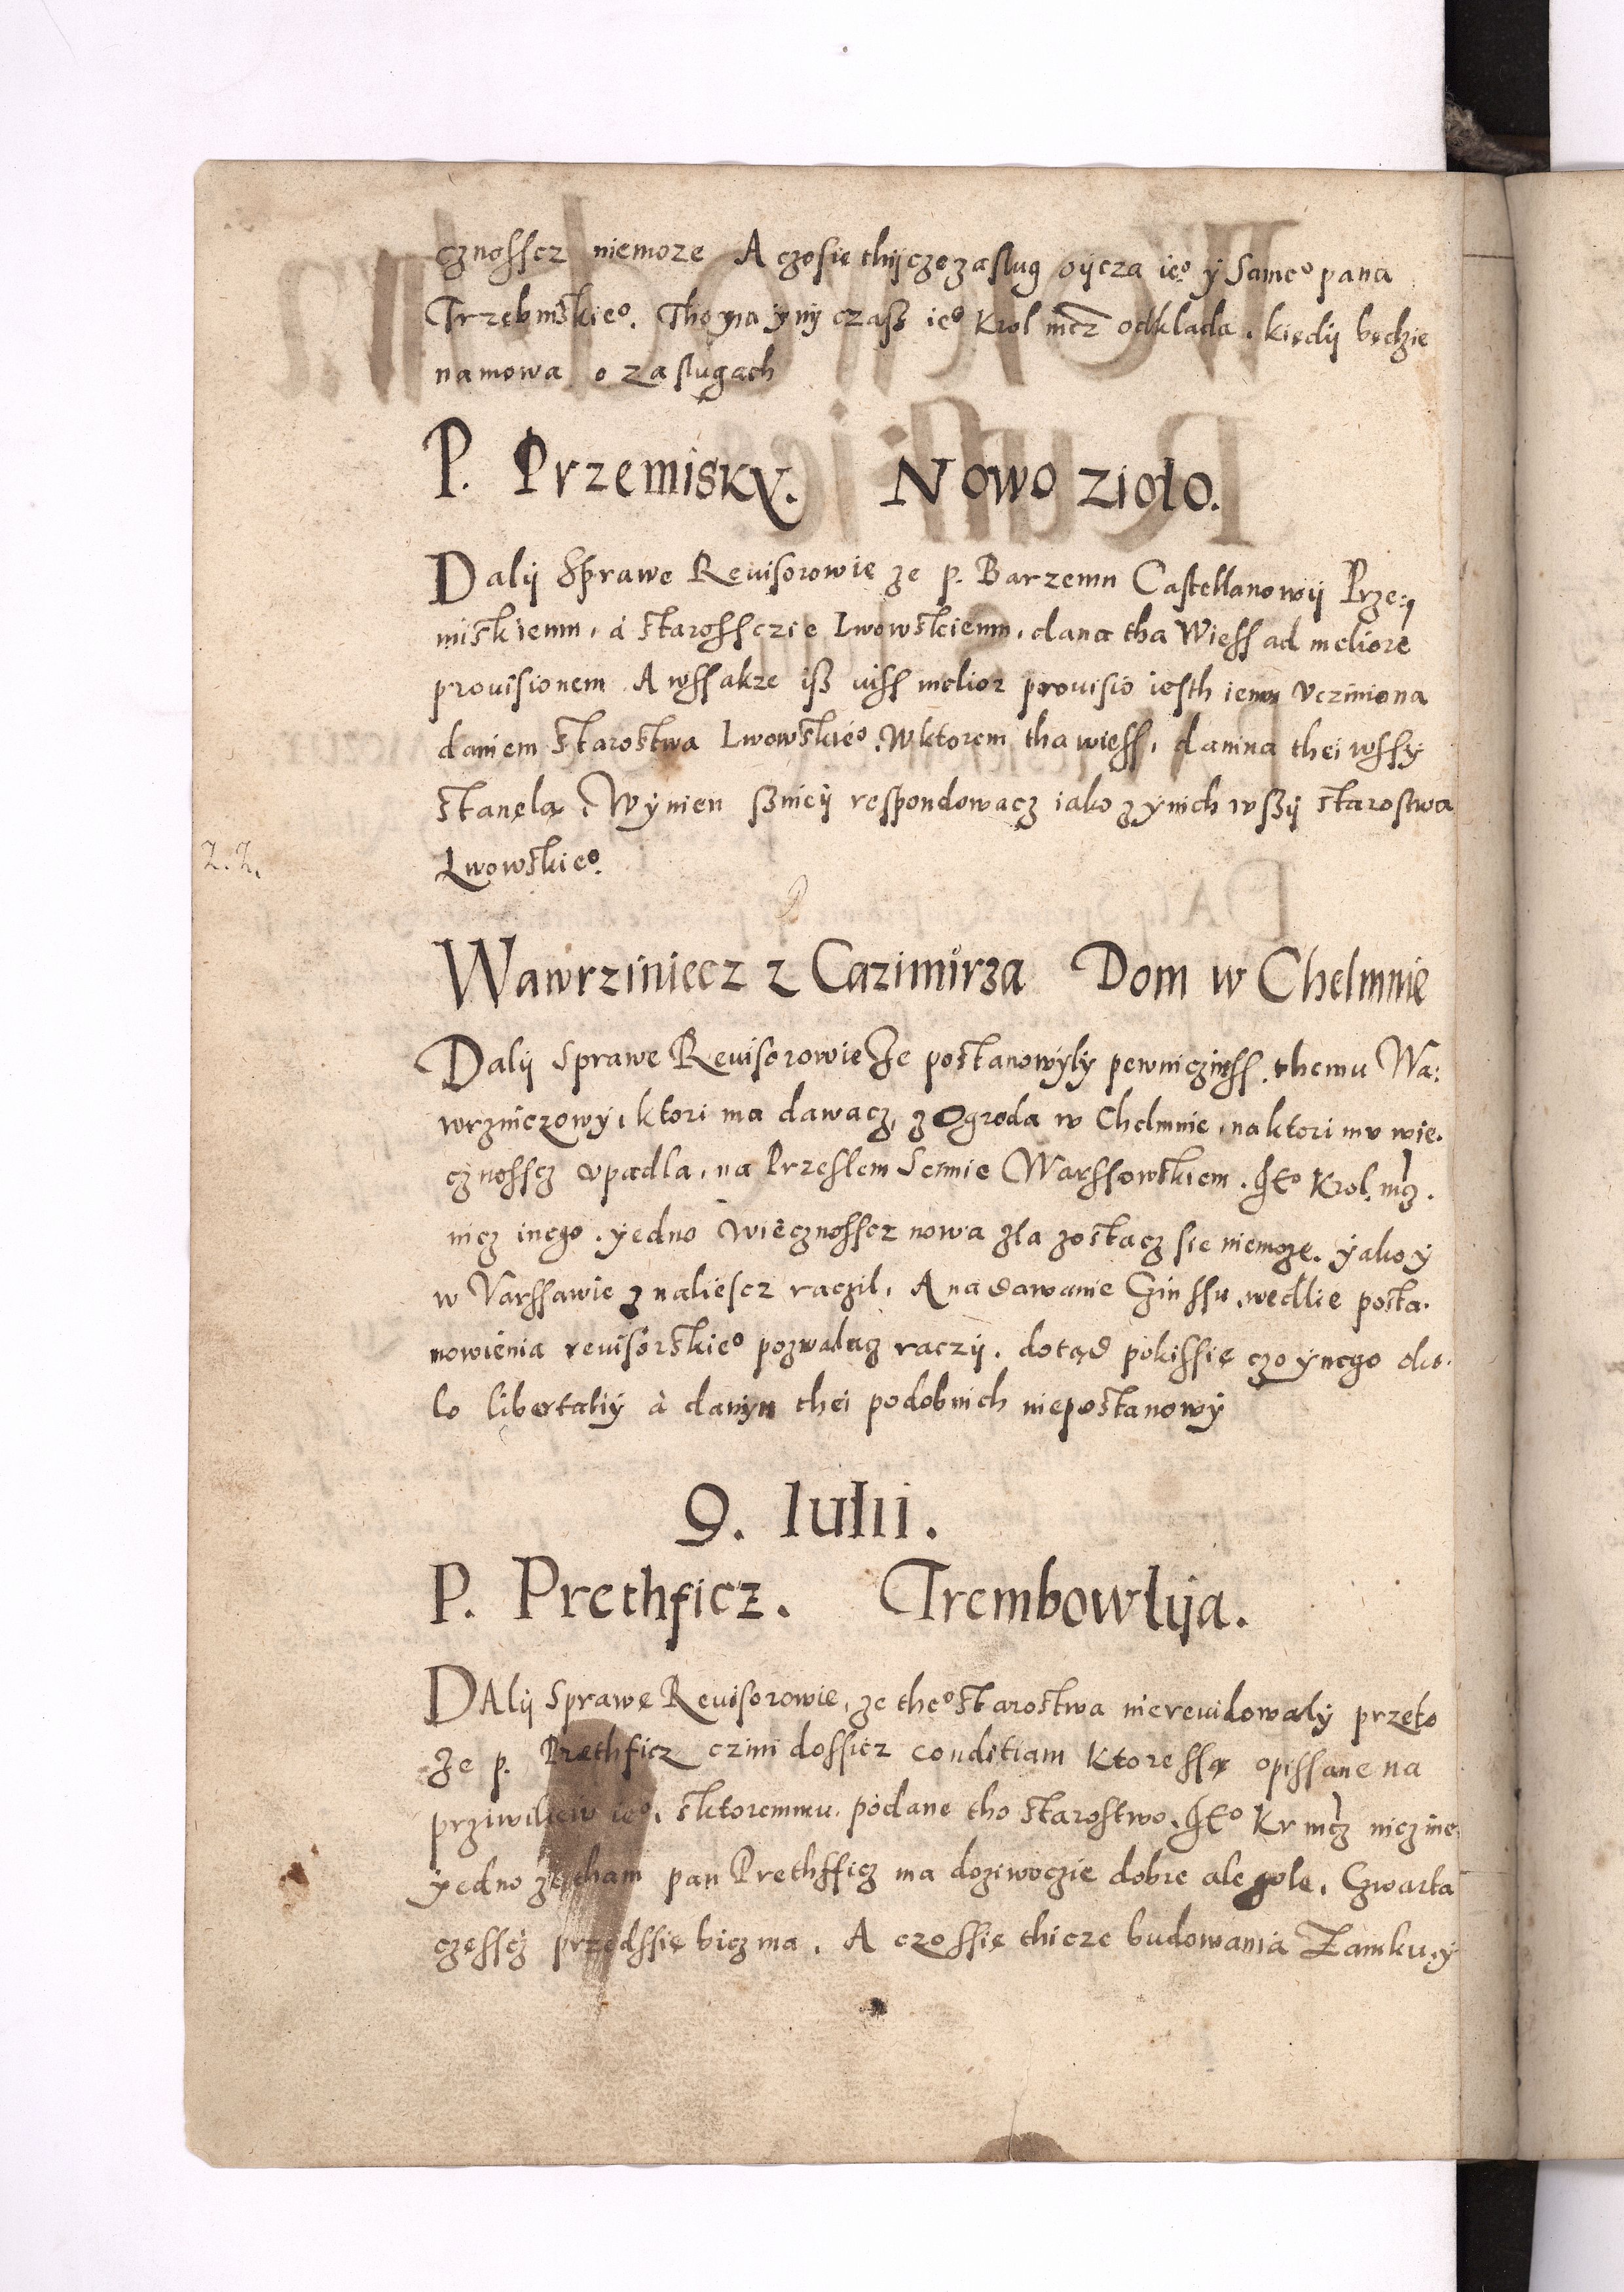 cznosscz niemoze A czosie thijcze zaslug oijcza ieº ÿ Sameº pana
Trzebinskieº. Tho na ÿnÿ czasz ieº Krol mcz odklada. kiedij będzie
namowa o zaslugach
P. Przemiskÿ. Nowo zioło.
Dalij Sprawe Reuisorowie ze p. Barzemu Castellanowij Prze:
miskiemu, á starossczie Lwowskiemu, dana tha Wiess ad meliorē
prouisionem A wssakze isz uiss melior prouisio iesth iemu vcziniona
daniem starostwa Lwowskieº. W ktorem tha wiess, danina thei wssÿ
stanęla. Wÿnien sznieij respondowacz iako z ÿnich wszij starostwa
2. 2.
Lwowskieº.
Wawrziniecz z Cazimirza Dom w Chelmnie
Dalij Sprawe Reuisorowie Ze postanowÿlÿ pewniczinss. themu Wa:
wrzniczowÿ, ktori ma dawacz, z Ogroda w Chelmnie, na ktori mv wie.
cznoscz vpadla, na Przeslem Seimie Warssowskiem. JEº Krol. mcz.
nicz inego. ÿedno wiecznosscz nowa zła zostacz sie niemoze. ÿako ÿ
w Varssawie znaliescz raczil. A na dawanie Czinssu, wedlie posta.
nowienia reuisorskieº pozwalacz raczij. dotąd pokissię czo ÿnego oko.
lo libertatiÿ à danÿn thei podobnich niepostanowÿ
9. Iulii.
P. Prethficz. Trembowlija.
DAlij Sprawę Reuisorowie, ze theº starostwa nierewidowalÿ przeto
Ze p. Prethficz czini dossicz conditiam ktoressą opissane na
prziwiliew ieº, sktoremmu podane tho starostwo. JEº Kr mcz nicz ine
ÿedno ze tham pan Prethfficz ma doziwoczie dobre ale gole. Czwarta
częsscz przedssię bicz ma. A czo ssię thicze budowania Zamku, ÿ